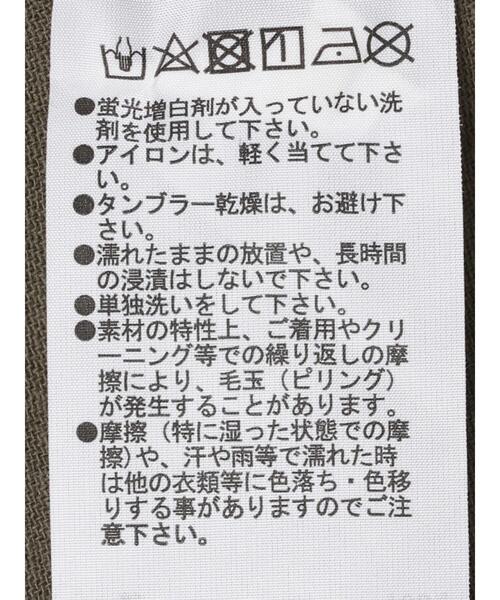 ●蛍光増白剤が入っていない洗
剤を使用して下さい。
●アイロンは、軽く当てて下さ
い。
●タンブラー乾燥は、お避け下
さい。
●濡れたままの放置や、長時間
の浸漬はしないで下さい。
●単独洗いをして下さい。
●素材の特性上、ご着用やクリ
ーニング等での繰り返しの摩
擦により、毛玉（ピリング）
が発生することがあります。
●摩擦（特に湿った状態での摩
擦)や、汗や雨等で濡れた時
は他の衣類等に色落ち・色移
りする事がありますのでご注
意下さい。